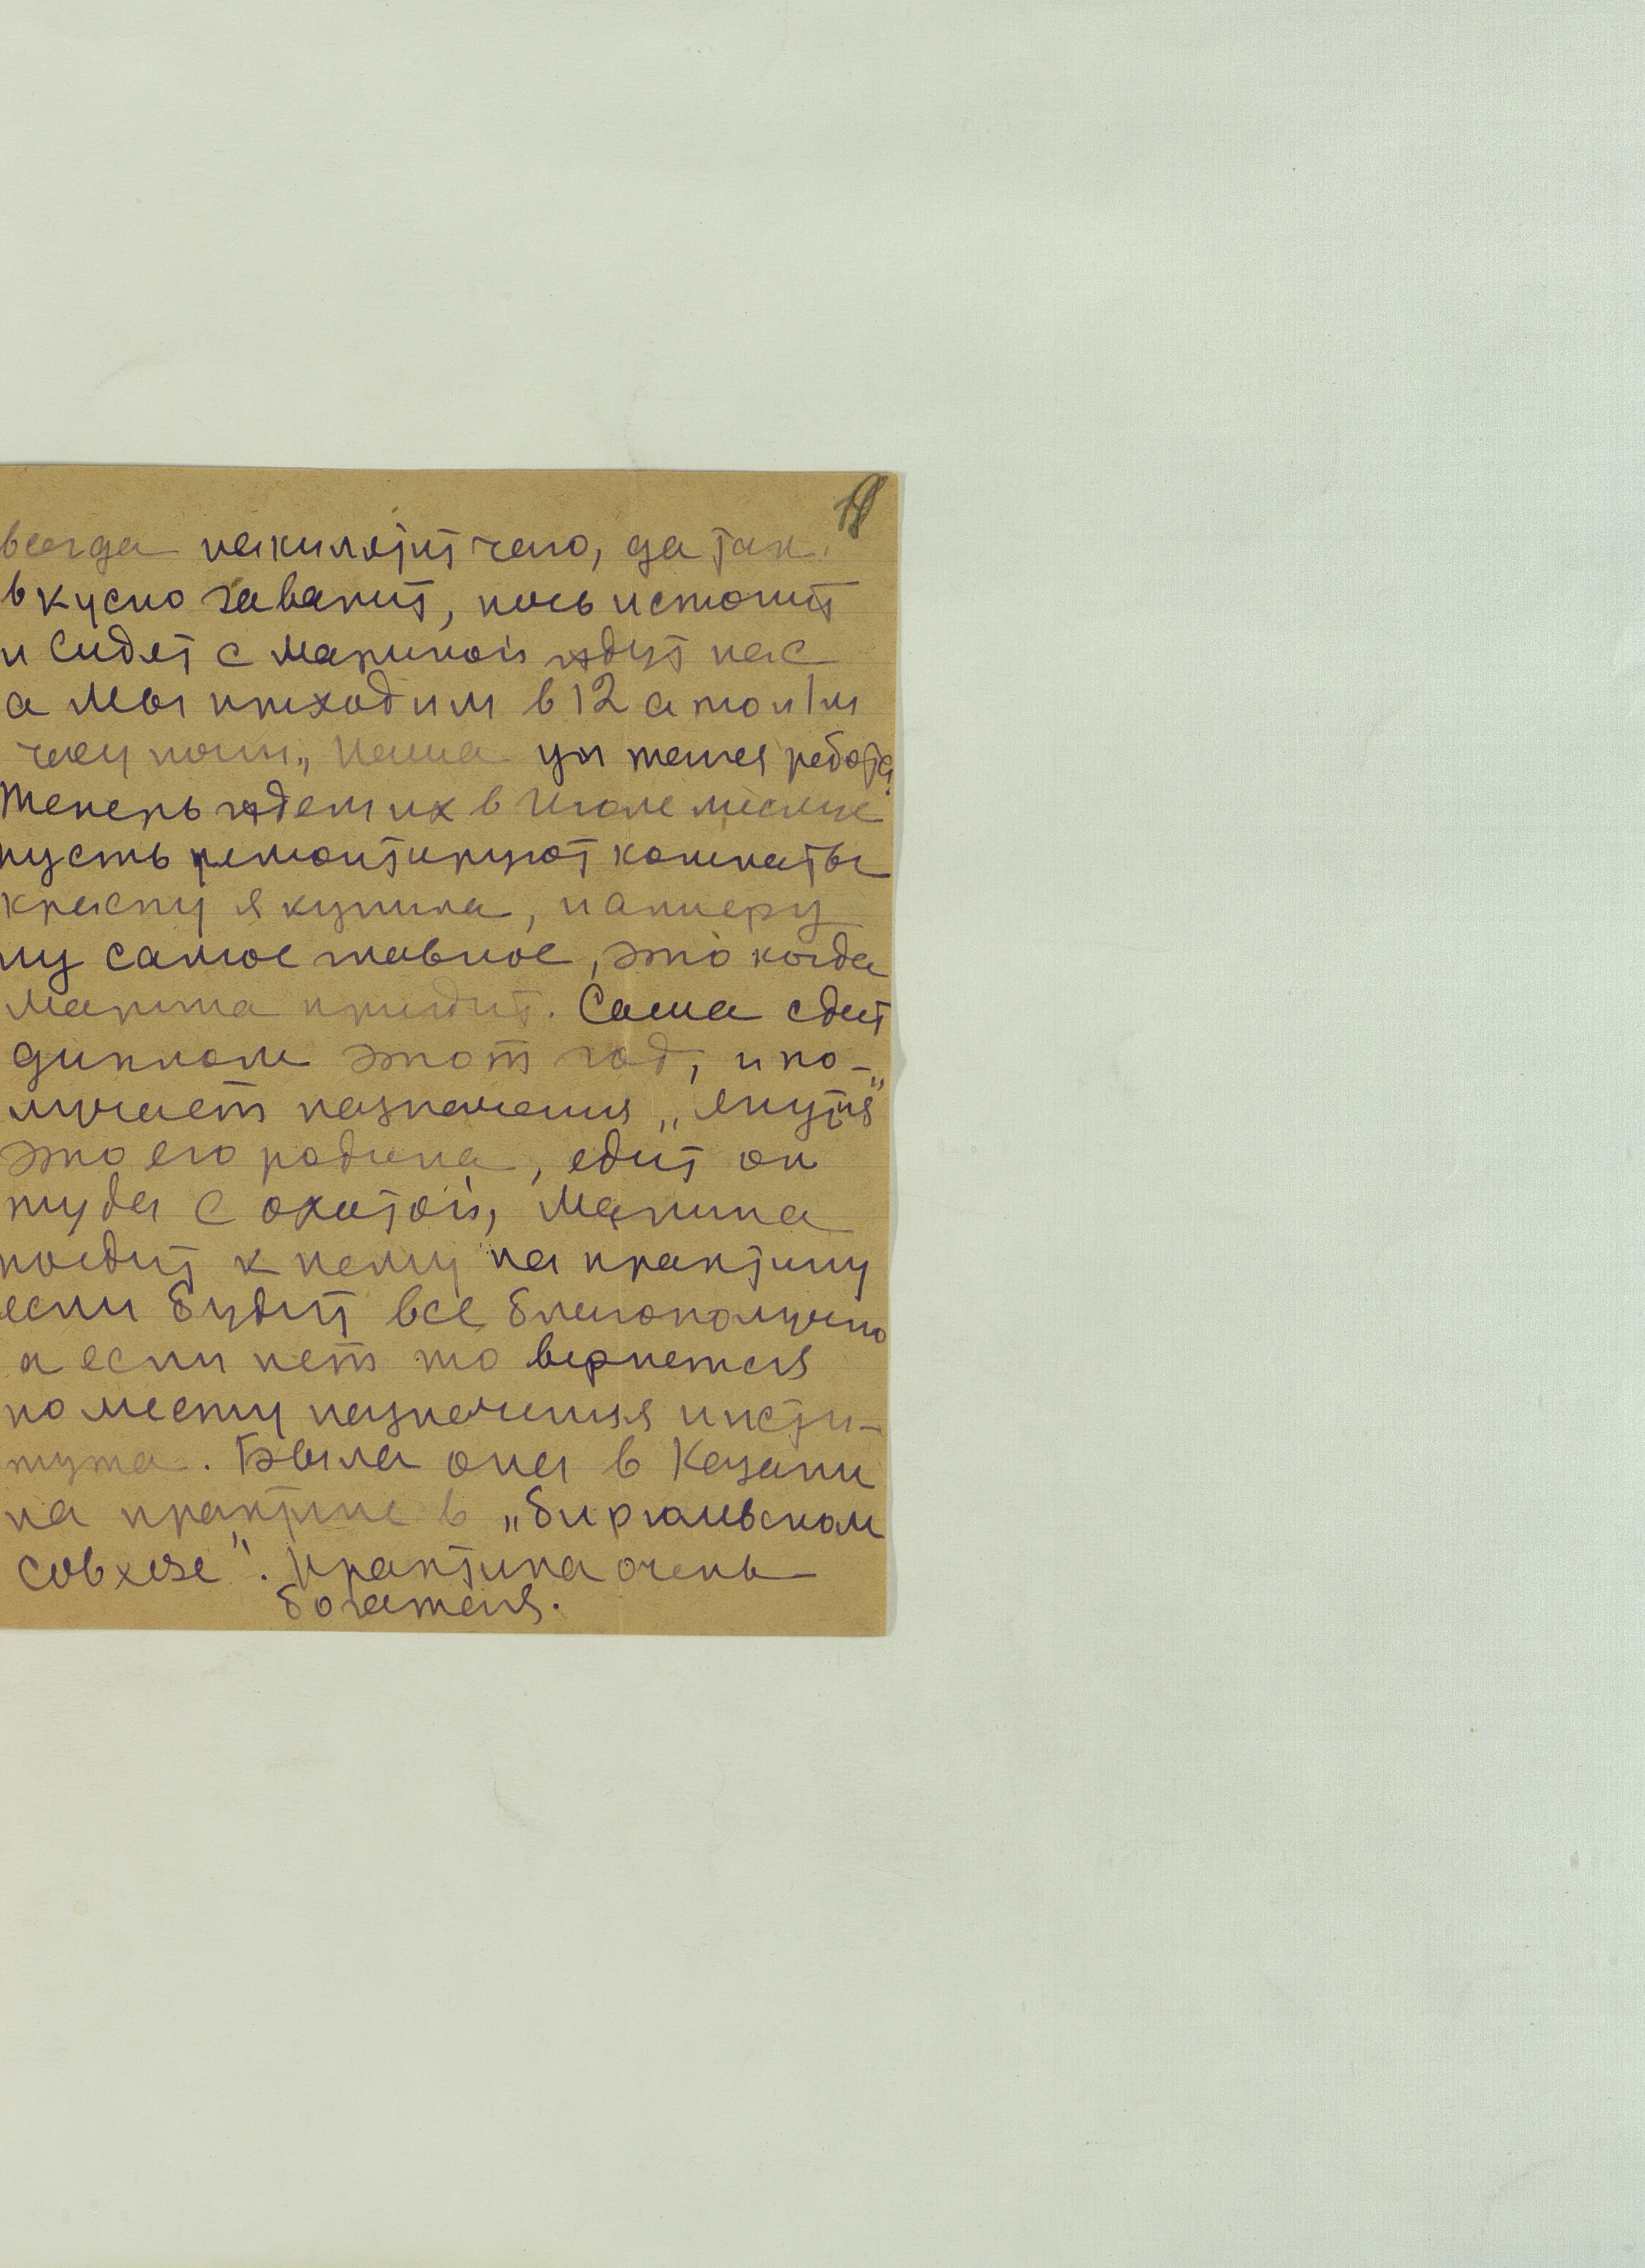 всегда накипятит чаю, да так
вкусно заварит, печь истопит
и сидят с Мариной ждут нас
а мы приходим в 12 а то и 1 м
часу ночи, наша уж такая работа.
Теперь ждем их в Июле месяце
пусть ремонтируют комнаты
краску я купила, и фанеру
ну самое главное, это когда
Марина придит. Саша сдает
диплом этот год, и по-
лучает назначения „Якутия"
это его родина, едит он
туда с охотой, Марина
поедит к нему на практику
если будит все благополучно
а если нет то вернется
по месту назначения инсти-
тута. Была она в Казани
на практике в „Бирюлевском
совхозе". Практика очень
богатая.